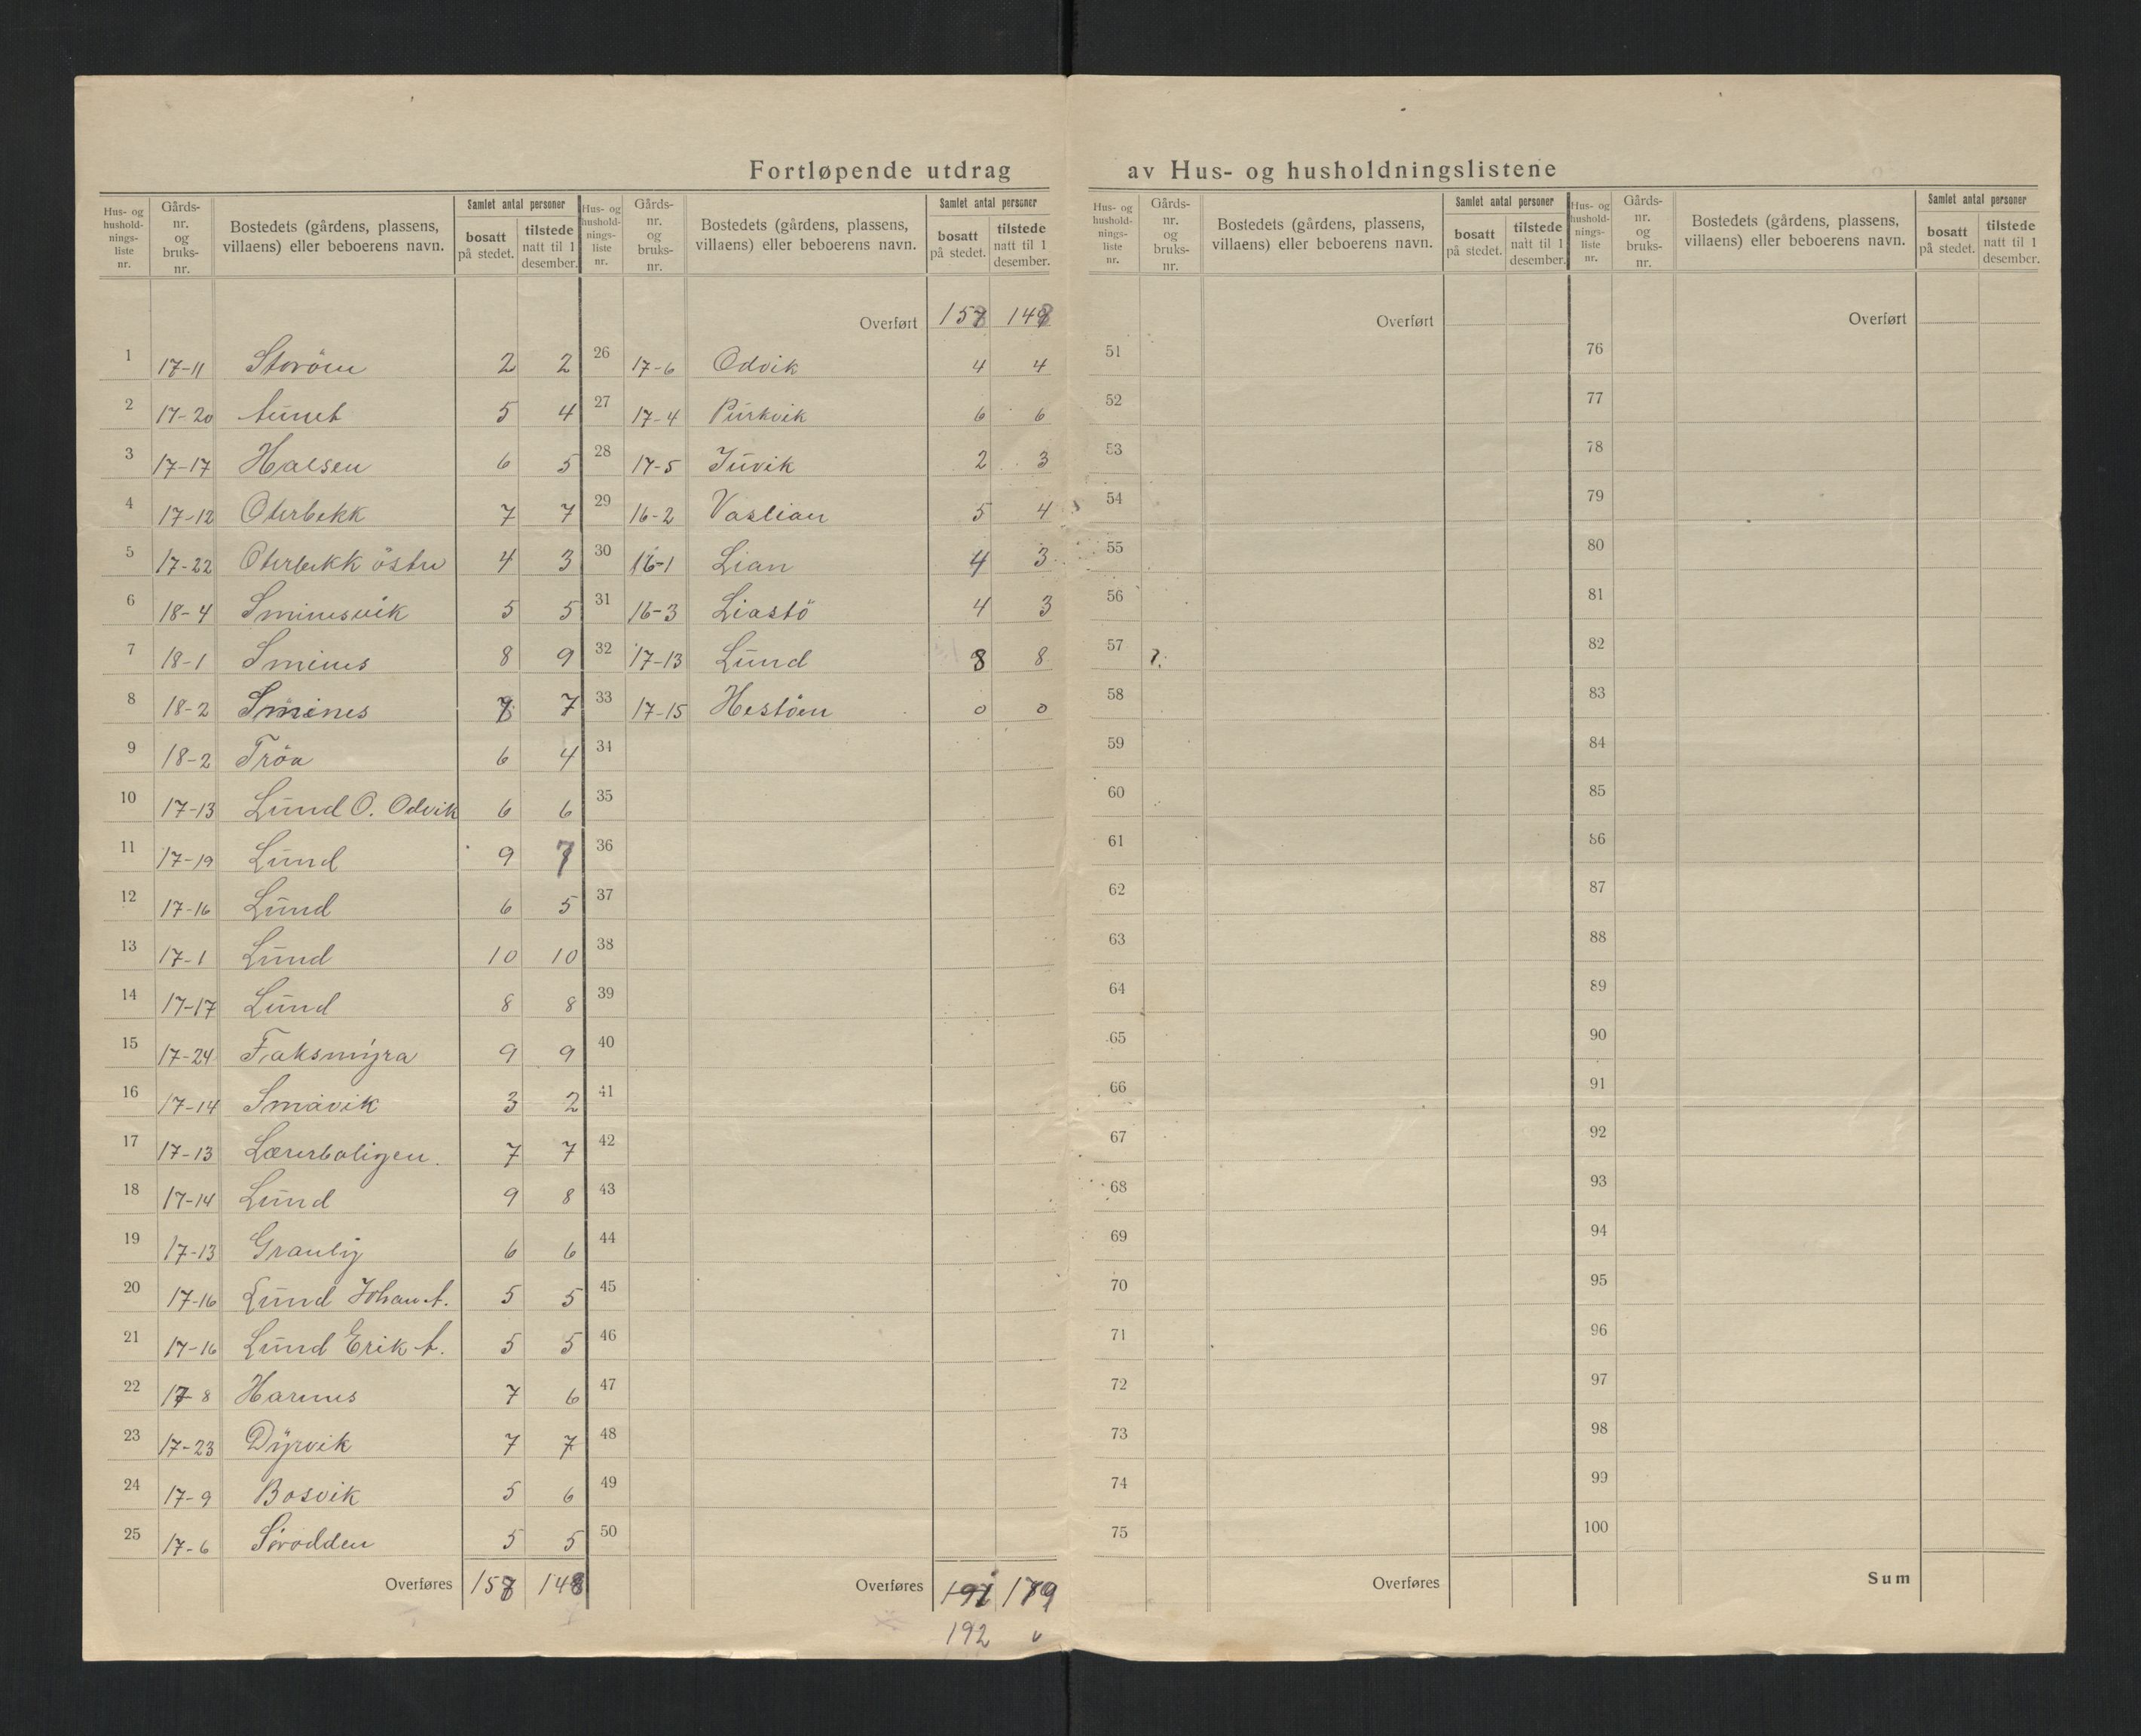 Fortløpende utdrag av Hus- og husholdningslistene
Hus- og hushold-nings-liste nr. Gårds-nr. og bruks-nr. Bostedets (gårdens, plassens, villaens) eller beboerens navn. Samlet antal personer bosatt på stedet. tilstede natt til 1 desember.
1 17-11 Storöen 2 2
2 17-20 5 4
3 17-17 Halsen 6 5
4 17-12 Oterbekk 7 7
5 17-22 Oterbekk östre 4 3
6 18-4 Sminesvik 5 5
7 18-1 Smines 8 9
8 18-2 Smines 7
9 18-2 Tröa 6 4
10 17-13 Lund O. Odvik 6 6
11 17-19 Lund 9 7
12 17-16 Lund 6 5
13 17-1 Lund 10 10
14 17-17 Lund 8 8
15 17-24 Faksmyra 9 9
16 17-14 Småvik 3 2
17 17-13 Lærerboligen. 7 7
18 17-14 Lund 9 8
19 17-13 Granly 6 6
20 17-16 Lund Johan A. 5 5
21 17-16 Lund Erik A. 5 5
22 17-8 Harnes 7 6
23 17-23 Dyrvik 7 7
24 17-9 Bosvik 5 6
25 17-6 5 5
Overføres 158 148
Hus- og hushold-nings-liste nr. Gårds-nr. og bruks-nr. Bostedets (gårdens, plassens, villaens) eller beboerens navn. Samlet antal personer bosatt på stedet. tilstede natt til 1 desember.
Overført 158 148
26 17-6 Odvik 4 4
27 17-4 Purkvik 6 6
28 17-5 Juvik 2 3
29 16-2 Vaslian 5 4
30 16-1 Lian 4 3
31 16-3 Liastö 4 3
32 17-13 Lund 8 8
33 17-15 Hestöen 0 0
34
35
36
37
38
39
40
41
42
43
44
45
46
47
48
49
50
Overføres 191 179
192
Hus- og hushold-nings-liste nr. Gårds-nr. og bruks-nr. Bostedets (gårdens, plassens, villaens) eller beboerens navn. Samlet antal personer bosatt på stedet. tilstede natt til 1 desember.
Overført
51
52
53
54
55
56
57
58
59
60
61
62
63
64
65
66
67
68
69
70
71
72
73
74
75
Overføres
Hus- og hushold-nings-liste nr. Gårds-nr. og bruks-nr. Bostedets (gårdens, plassens, villaens) eller beboerens navn. Samlet antal personer bosatt på stedet. tilstede natt til 1 desember.
Overført
76
77
78
79
80
81
82
83
84
85
86
87
88
89
90
91
92
93
94
95
96
97
98
99
100
Sum